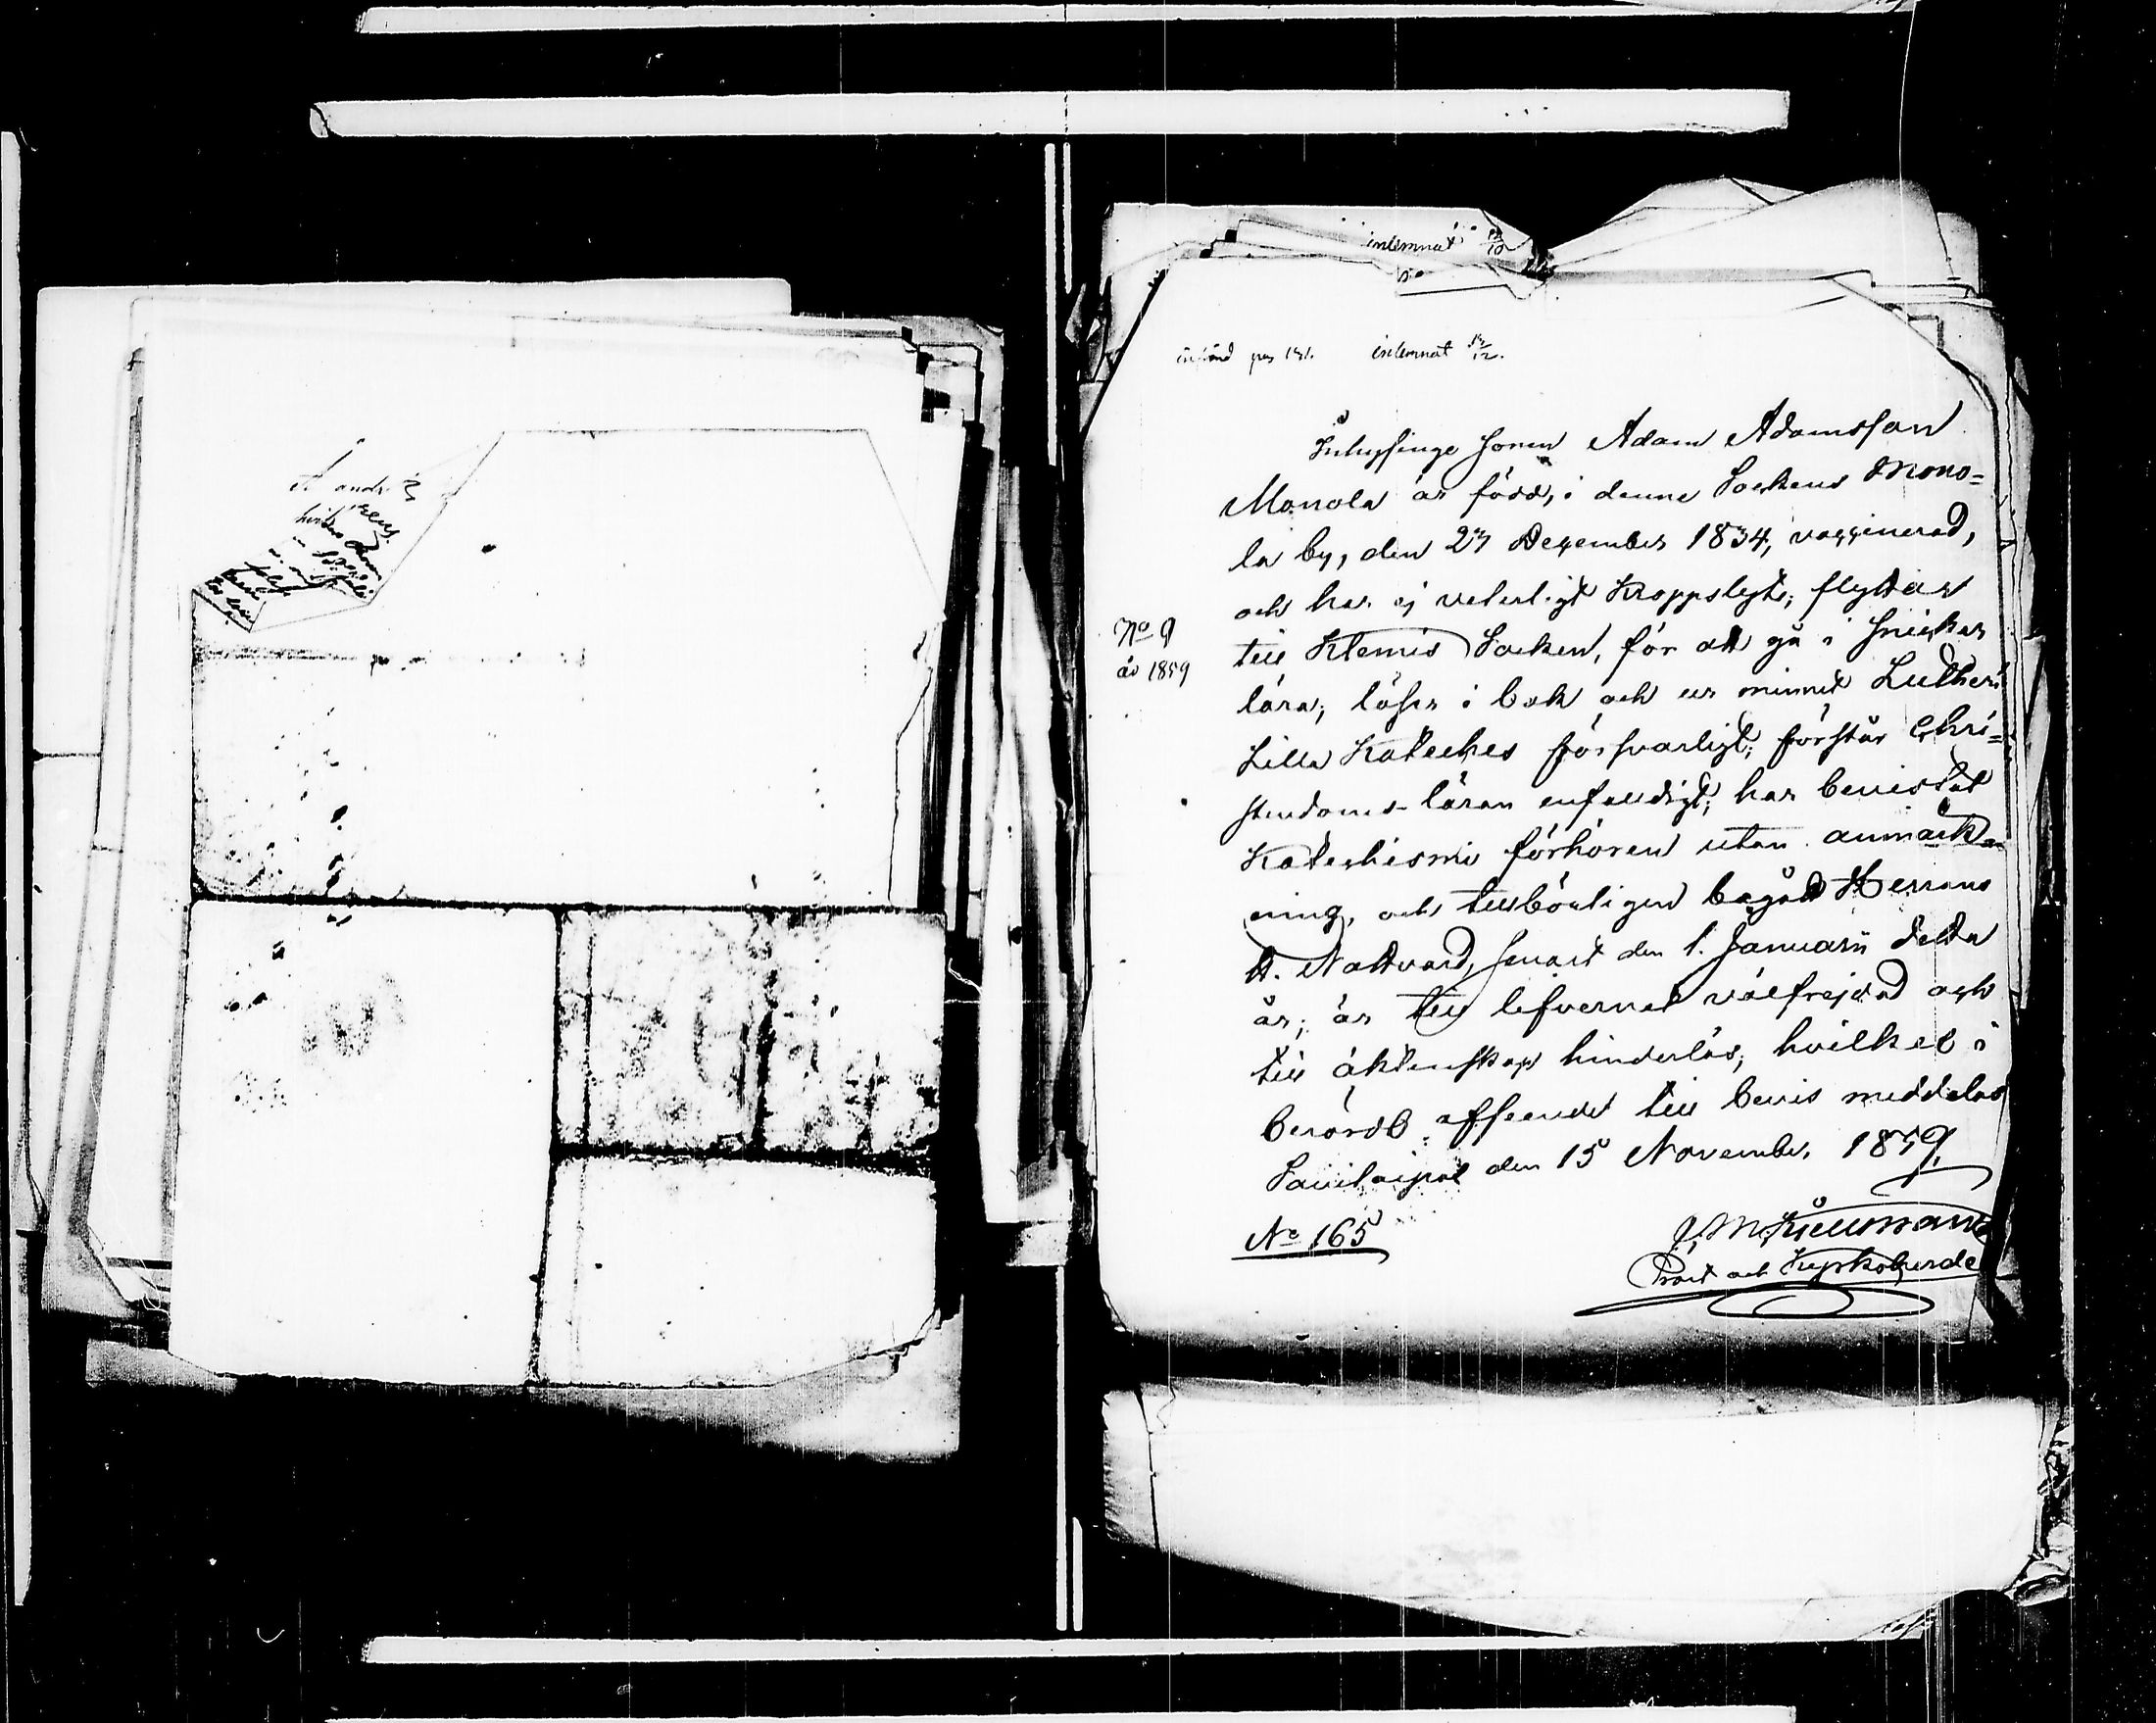 inlemnat 12/10
införd pag 131. inlemnat 13/12.
Inhysinge sonen Adam Adamsson
Monola är född, i denne Sockens Mono=
la by, den 23 December 1834, vaccinerad,
och har ej veterligt Kroppslyte; flyttar
No 9
år 1859
till Klemis Socken, för att gå i snickar
lära; läser i bok och ur minnet Lutheri
Lilla Kateches försvarligt; förstår Chri=
stendoms-läran enfaldigt; har bevistat
Katechismi förhören utan anmärk=
ning, och tillbörligen begått Herrans
H. Nattvard, senast den 1. Januarii detta
år; är till lefvernet välfrejdad och
till äktenskap hinderlös; hvilket i
berördt afseende till bevis meddelas
Savitaipal den 15 November 1859,
No 165
Prost och Kyrkoherde